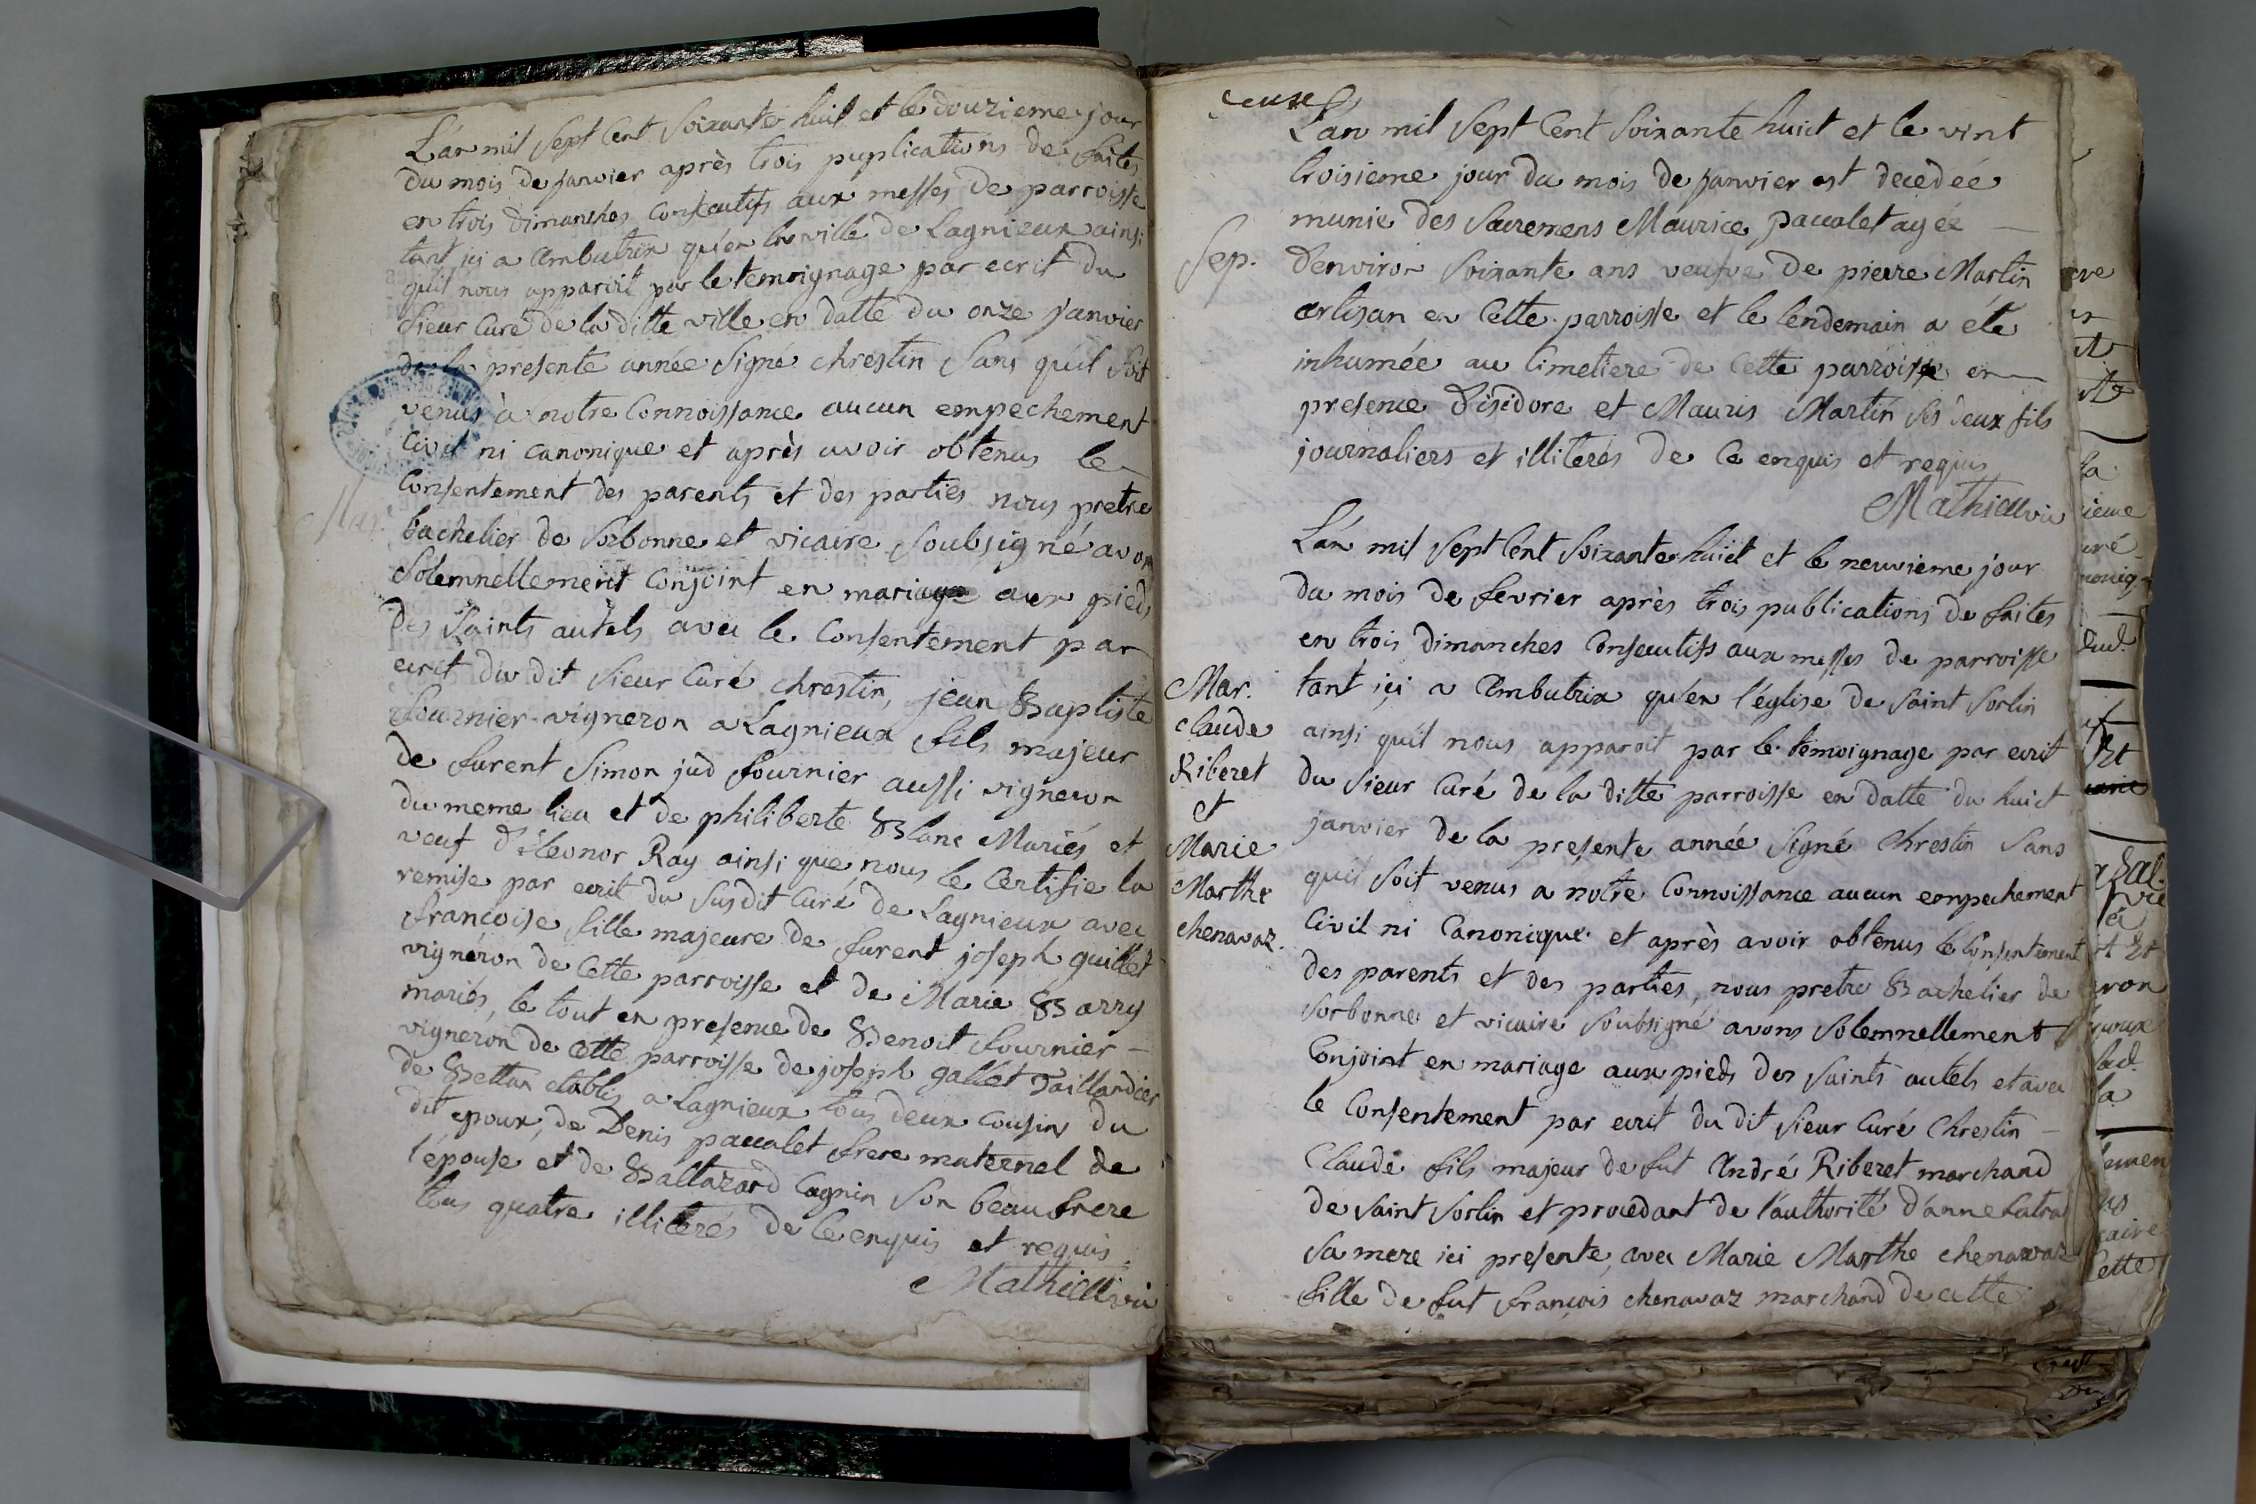 L'an mil sept cent soixante huit et le douzieme jour
du mois de janvier après trois puplications de faites
en trois dimanches consecutifs aux messes de parroisse
tant içi a Ambutrix qu'en la ville de Lagnieux ainsi
quil nous apparoit par le temoignage par ecrit du
sieur Curé de la ditte ville en datte du onze janvier
de la presente année signé chrestin sans quil soit
venus à notre Connoissance aucun empechement
Civil ni canonique et après avoir obtenus le
Consentement des parents et des parties nous pretre
bachelier de Sorbonne et vicaire soubsigné avons
Solemnellement Conjoint en mariage aux pieds
des Saints autels avec le Consentement par
ecrit du dit sieur Curé chrestin, jean Baptiste
fournier vigneron a Lagnieux fils majeur
de furent Simon jud fournier aussi vigneron
du meme lieu et de philiberte Blanc Mariés et
veuf d'éleonor Ray ainsi que nous le Certifie la
remise par ecrit du susdit Curé de Lagnieux avec
françoise fille majeure de furent joseph guillet
vignéron de Cette parroisse et de Marie Barry
mariés, le tout en presence de Benoit fournier
vigneron de Cette parroisse de joseph gallet Taillandier
de Bettan etablis a Lagnieux tous deux Cousins du
dit epoux, de Denis paccalet frere maternel de
l'épouse et de Baltazard Cagnin son beaufrere
tous quatre illiterés de Ce enquis et requis
Mathieu vic
Mar.
L'an mil sept Cent soixante huict et le vint
troisieme jour du mois de janvier est decedée
munie des Sacremens Maurice paccalet agée
Sep.
d'environ soixante ans veufve de pierre Martin
artisan en Cette parroisse et le lendemain a été
inhumée au Cimetiere de Cette parroisse en
presence d'isidore et Mauris Martin ses deux fils
journaliers et illiterés de Ce enquis et requis
Mathieu vic
L'an mil sept Cent soixante huict et le neuvieme jour
du mois de fevrier après trois publications de faites
en trois dimanches Consecutifs aux messes de parroisse
Mar.
claude
Riberet
et
Marie
Marthe
chenavaz.
tant içi a Ambutrix qu'en l'église de saint sorlin
ainsi qu'il nous apparoit par le témoignage par ecrit
du sieur Curé de la ditte parroisse en datte du huict
janvier de la presente année signé Chrestin sans
quil soit venus a notre Connoissance aucun empechement
Civil ni Canonique et après avoir obtenus le Consentement
des parents et des parties, nous pretre Bachelier de
sorbonne et vicaire soubsigné avons solemnellement
Conjoint en mariage aux pieds des saints autels et avec
le Consentement par ecrit du dit sieur Curé Chrestin
Claude fils majeur de fut André Riberet marchand
de saint sorlin et procedant de l'authorité d'anne
sa mere ici presente, avec Marie Marthe chenavaz
fille de fut françois chenavaz marchand de cette